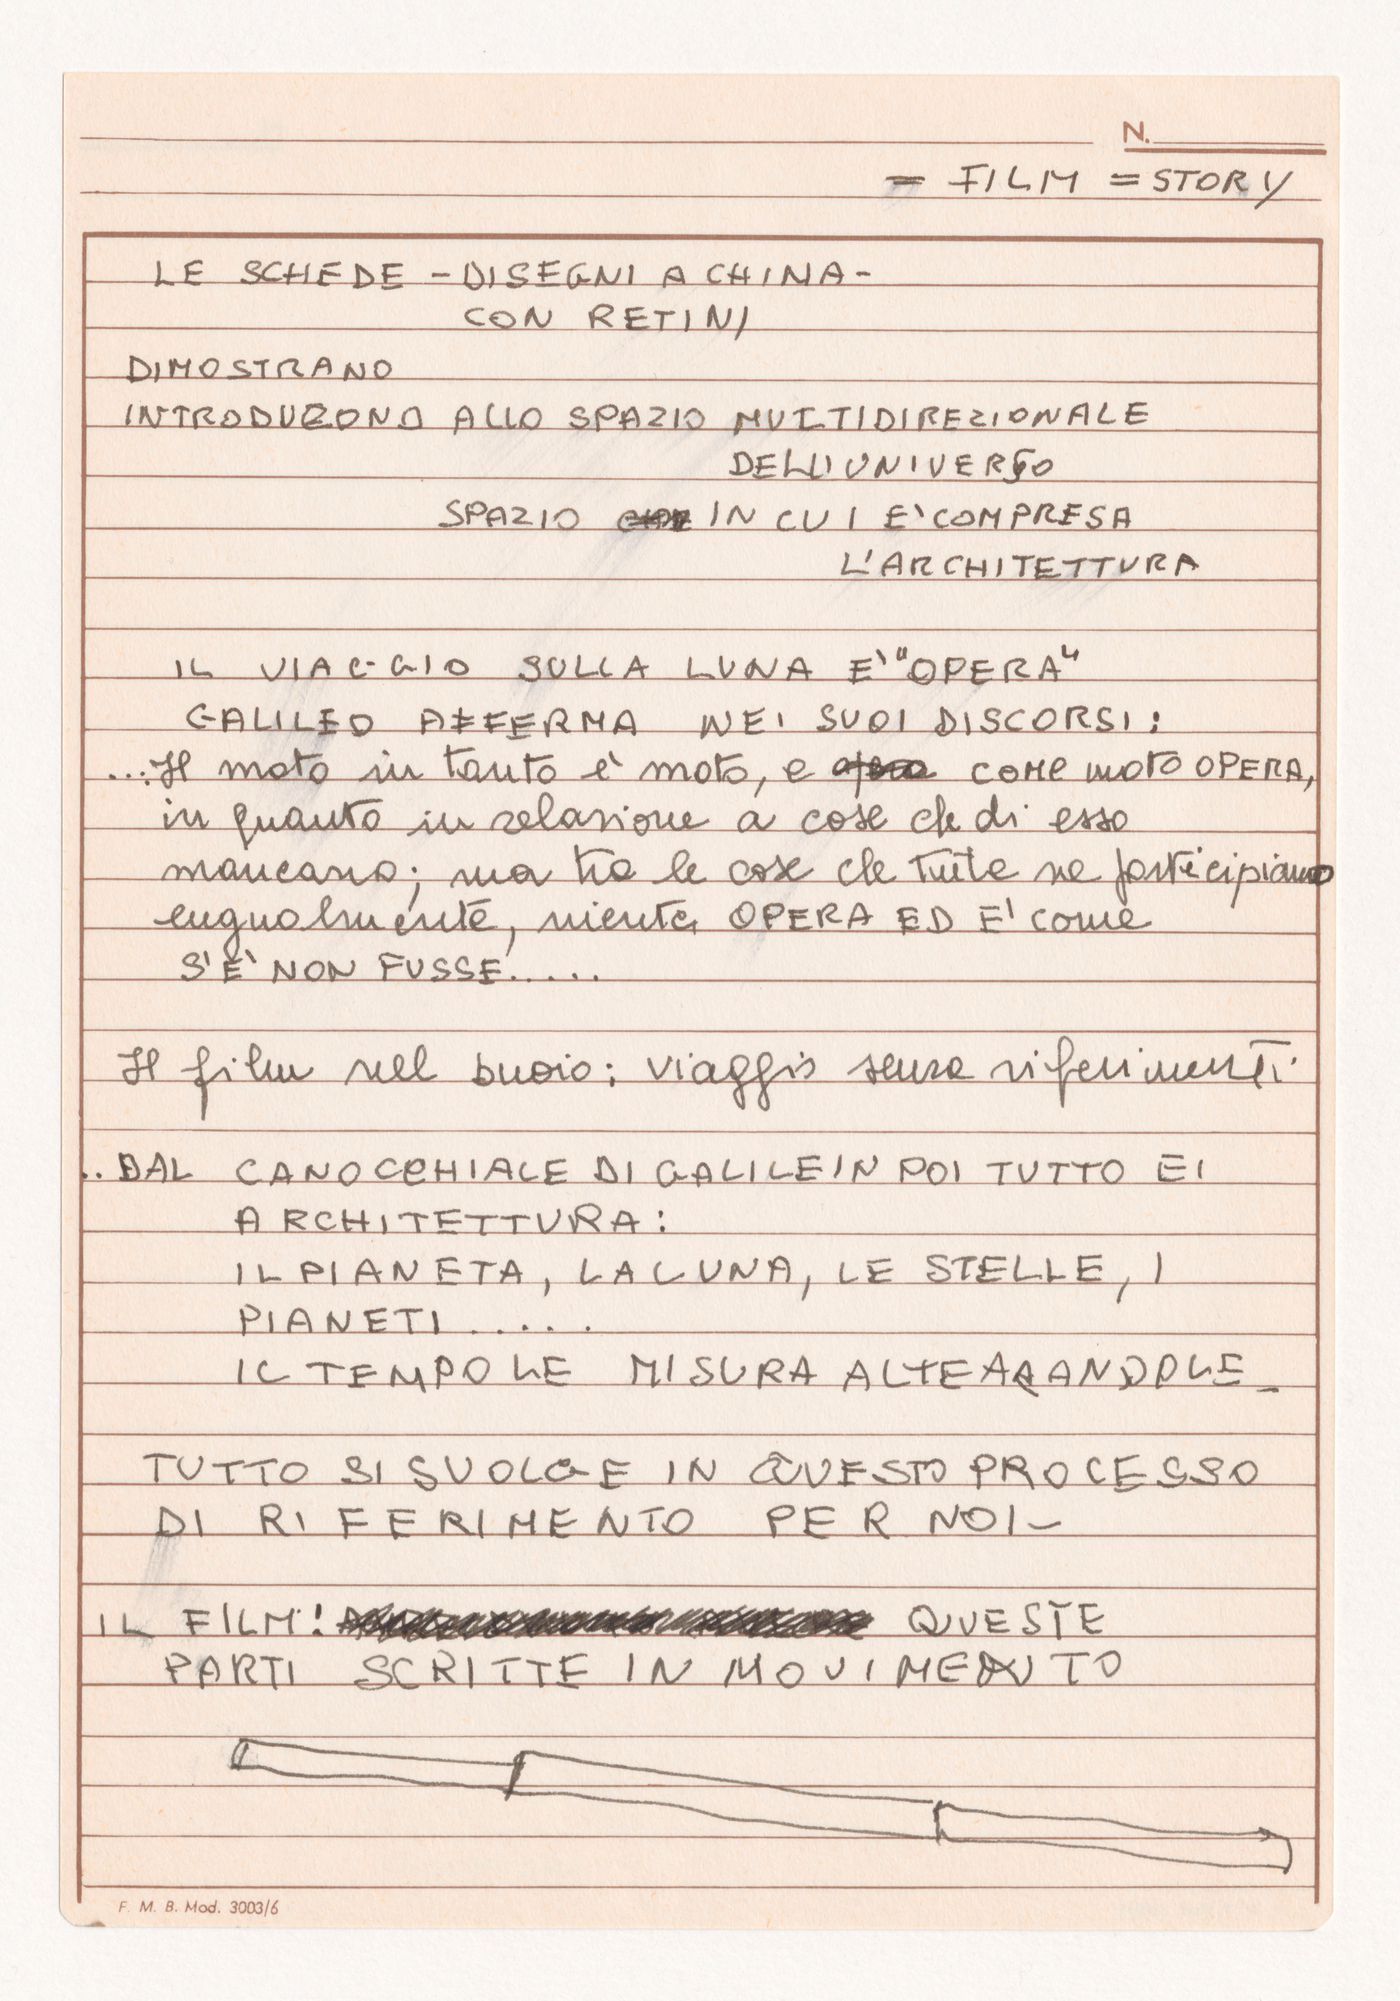 N.
= FILM = STORY
LE SCHEDE - DISEGNI A CHINA -
CON RETINI
DIMOSTRANO
INTRODUCONO ALLO SPAZIO MULTIDIREZIONALE
DELL'UNIVERSO
SPAZIO IN CUI E' COMPRESA
L'ARCHITETTURA
IL VIAGGIO SULLA LUNA E' "OPERA"
GALILEO AFFERMA NEI SUOI DISCORSI:
...Il moto in tanto è moto, e come moto OPERA,
in quanto in relazione a cose che di esso
mancano; ma tra le cose che tutte ne participiano
eugualmente, niente OPERA ED E' come
S'E' NON FUSSE.....
Il film nel buoio: viaggio senza riferimenti
..DAL CANOCCHIALE DI GALILEI IN POI TUTTO E I
ARCHITETTURA:
IL PIANETA, LA LUNA, LE STELLE, I
PIANETI.....
IL TEMPO LE MISURA ALTERANDOLE_
TUTTO SI SVOLGE IN QUESTO PROCESSO
DI RIFERIMENTO PER NOI-
IL FILM: QUESTE
PARTI SCRITTE IN MOVIMENTO
F. M. B. Mod. 3003/6